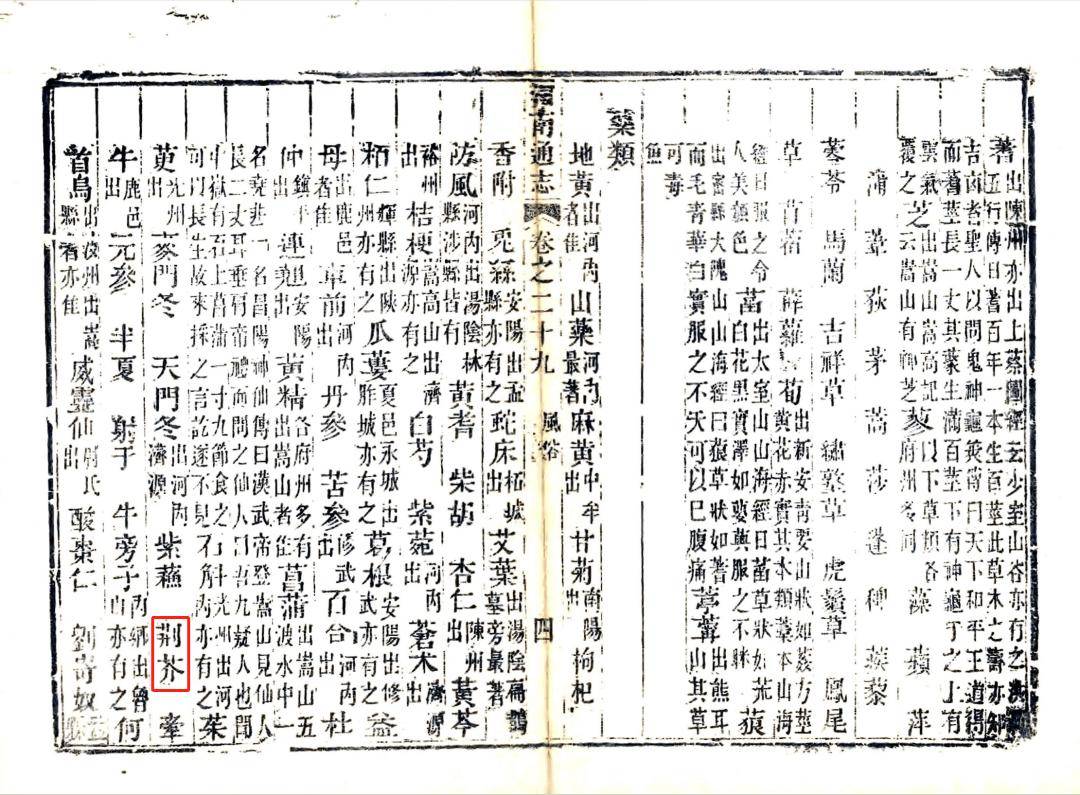 蓍出陳州亦出上蔡圖經云少室山谷亦有之洪範
五行傳曰蓍百年一本生百莖此草木之壽亦知
吉凶者聖人以問鬼神龜筴傳曰天下和平王道得
而蓍莖長一丈其叢生滿百莖下有神龜守之上有
雲氣覆之芝出嵩山嵩高記云嵩山有神芝蓼以下草類各府州各同藻 蘋 萍
蒲 葦 荻 茅 蒿 莎 蓬 稗 蒺藜
苓 馬蘭 吉祥草 繡墩草 虎鬚草 鳳尾
草 苜蓿 薜蘿 荀出新安青要山狀如葌方莖黃花赤實其本類藁本山海
經曰服之令人美顏色 出太室山山海經曰 草狀如荒白花黑實澤如蘡薁服之不眯蒗
出密縣大騩山山海經曰蒗草狀如蓍而毛青華白實服之不夭可以已腹痛葶薴出熊耳山其草
可毒魚
藥類
地黃出河內者佳山藥河內最著麻黃中牟出甘菊南陽出枸杞
河南通志 卷之二十九 風俗 四
香附 兎絲安陽出孟縣亦有之蛇床柘城出艾葉出湯陰扁鵲墓旁最著
防風河內出湯陰林縣涉縣皆有黃耆 柴胡 杏仁陳州出黃芩
裕州出桔梗嵩高山出濟源亦有之白芍 紫菀河內出蒼朮濟源出
栢仁輝縣出陝州亦有之瓜蔞夏邑永城出胙城亦有之葛根安陽出修武亦有之益
母出鹿邑者佳車前河內出丹參 苦參修武出百合河內出杜
仲鎮平出連翹安陽出黃精各府州多有出嵩山者佳菖蒲出嵩山五渡水中一
名堯韭一名昌陽神仙傳曰漢武帝登嵩山見仙人
長二丈耳垂肩帝禮而問之仙人曰吾九疑人也聞
中嶽有石上菖蒲一寸九節食之可以長生故來採之言訖遂不見石角光州出河內亦有之茱
萸光州出麥門冬 天門冬出河內濟源紫蘇 荊芥 牽
牛鹿邑出元參 半夏 射干 牛旁子內鄉出魯山亦有之何
首烏出汝州出嵩縣者亦佳威靈仙尉氏出酸棗仁 劉寄奴